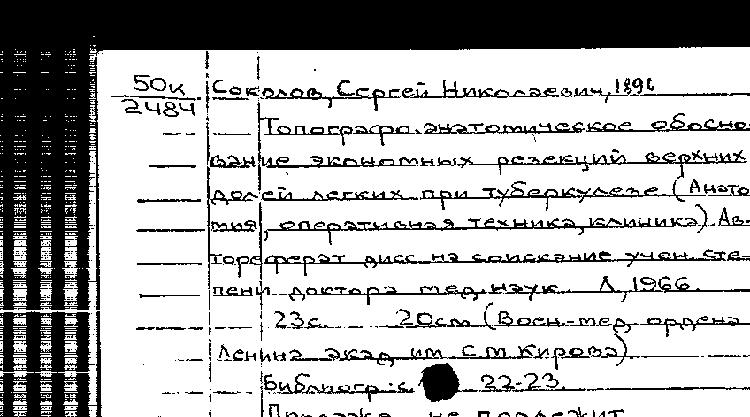 50к
2484
Соколов, Сергей Николаевич,
Топографо.анатомическое обосно
вание экономных резекций верхних
долей легких при туберкулезе (Анато
мия, оперативная техника, клиника). Ав-
тореферат дисс на соискание учен. сте-
пени доктора мед. наук. Л, 1966.
23с. 20см (Воен-мед ордена
Ленина акад им С М Кирова)
Библиогр: с. 22-23.
Продаже не подлежит